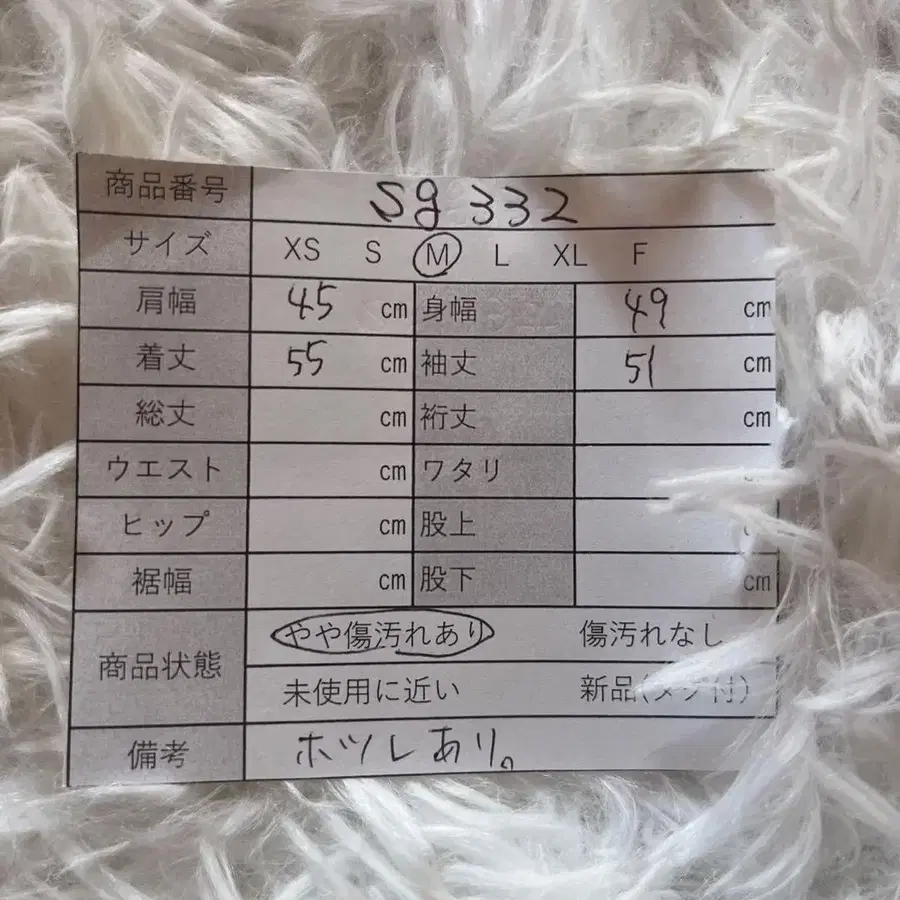 商品番号 sg 332
サイズ XS S M L XL F
肩幅 45 cm 身幅 49 cm
着丈 55 cm 袖丈 51 cm
総丈 cm 裄丈 cm
ウエスト cm ワタリ
ヒップ cm 股上
裾幅 cm 股下 cm
商品状態 やや傷汚れあり 傷汚れなし
未使用に近い 新品(タグ付)
備考 ホツレあり。